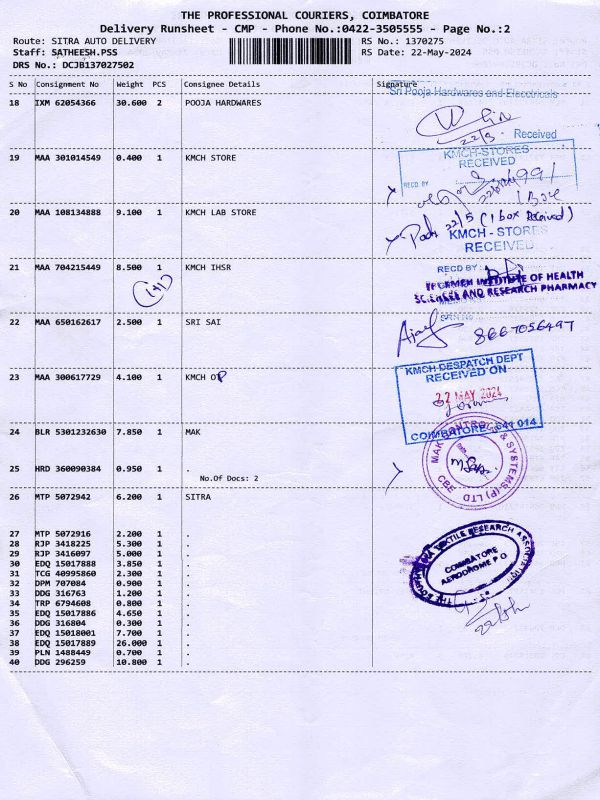 THE PROFESSIONAL COURIERS, COIMBATORE
Delivery Runsheet - CMP - Phone No.:0422-3505555 - Page No.:2
Route: SITRA AUTO DELIVERY RS No.: 1370275
Staff: SATHEESH.PSS RS Date: 22-May-2024
DRS No.: DCJB137027502
S No Consignment No Weight PCS Consignee Details Signature
Sri Pooja Hardwares and Electricals
18 IXM 62054366 30.600 2 POOJA HARDWARES
22/5
Received
19 MAA 301014549 0.400 1 KMCH STORE
KMCH-STORES
RECEIVED
RECD BY
1 Box
20 MAA 108134888 9.100 1 KMCH LAB STORE
22/5 (1 box Received)
KMCH - STORES
RECEIVED
21 MAA 704215449 8.500 1 KMCH IHSR
RECD BY :
(1+1)
KMCH INSTITUTE OF HEALTH
SCIENCES AND RESEARCH PHARMACY
22 MAA 650162617 2.500 1 SRI SAI
Ajay 8667056497
23 MAA 300617729 4.100 1 KMCH OP
KMCH DESPATCH DEPT
RECEIVED ON
22 MAY 2024
COIMBATORE - 641 014
24 BLR 5301232630 7.850 1 MAK
MAK CONTROLS & SYSTEMS (P) LTD
CBE
25 HRD 360090384 0.950 1 .
No.Of Docs: 2
26 MTP 5072942 6.200 1 SITRA
TEXTILE RESEARCH ASSOCIATION
COIMBATORE
AERODROME P O
27 MTP 5072916 2.200 1 .
28 RJP 3418225 5.300 1 .
29 RJP 3416097 5.000 1 .
30 EDQ 15017888 3.850 1 .
31 TCG 40995860 2.300 1 .
32 DPM 707084 0.900 1 .
33 DDG 316763 1.200 1 .
34 TRP 6794608 0.800 1 .
35 EDQ 15017886 4.650 1 .
36 DDG 316804 0.300 1 .
37 EDQ 15018001 7.700 1 .
38 EDQ 15017889 26.000 1 .
39 PLN 1488449 0.700 1 .
40 DDG 296259 10.800 1 .